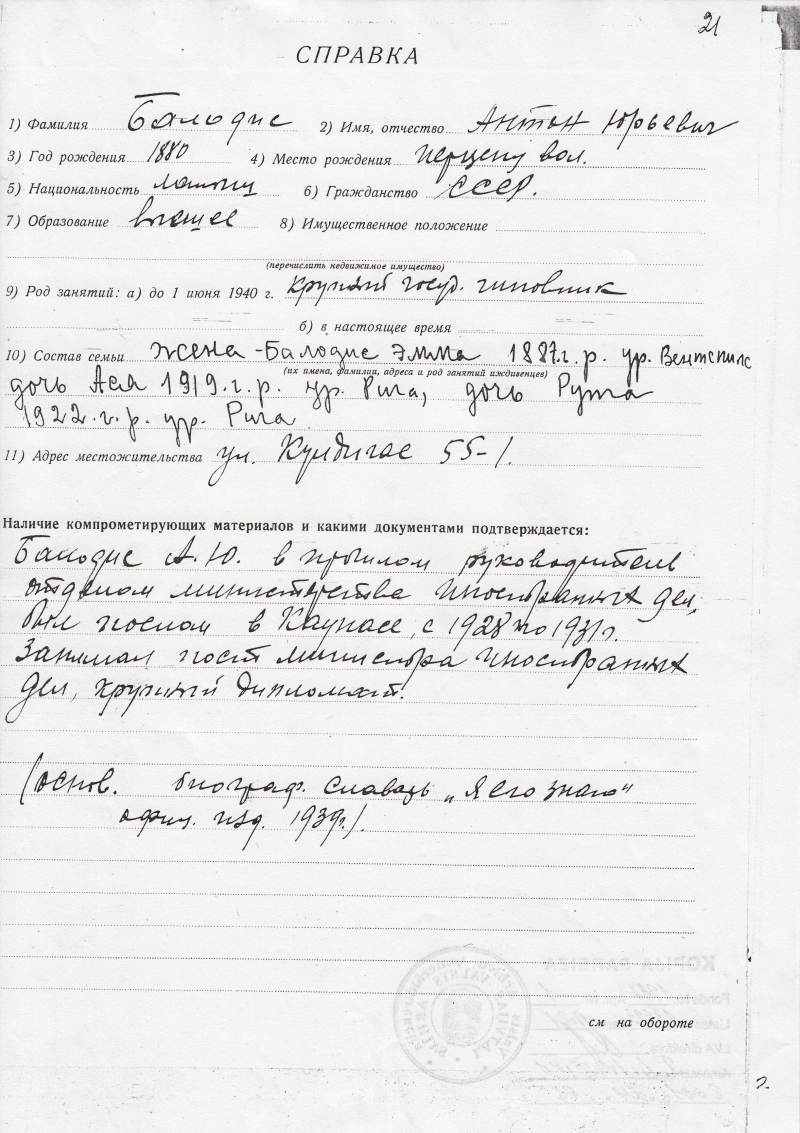 21
СПРАВКА
1) Фамилия Балодис 2) Имя, отчество Антон Юрьевич
3) Год рождения 1880 4) Место рождения вол.
5) Национальность латыш 6) Гражданство СССР.
7) Образование высшее 8) Имущественное положение
(перечислить недвижимое имущество)
9) Род занятий: а) до 1 июня 1940 г. крупный госуд. чиновник
б) в настоящее время
10) Состав семьи жена - Балодис Эмма 1887.г.р. ур. Вентспилс
(их имена, фамилии, адреса и род занятий иждивенцев)
дочь Ася 1919.г.р. ур. Рига, дочь Рута
1922.г.р. ур. Рига
11) Адрес местожительства ул. Кулдигас 55-1.
Наличие компрометирующих материалов и какими документами подтверждается:
Балодис А.Ю. в прошлом руководитель
отделом министерства иностранных дел,
был послом в Каунасе, с 1928 по 1931г.
Занимал пост министра иностранных
дел, крупный дипломат.
(основ. биограф. словарь „Я его знаю"
офиц. изд. 1939г.).
см на обороте
2